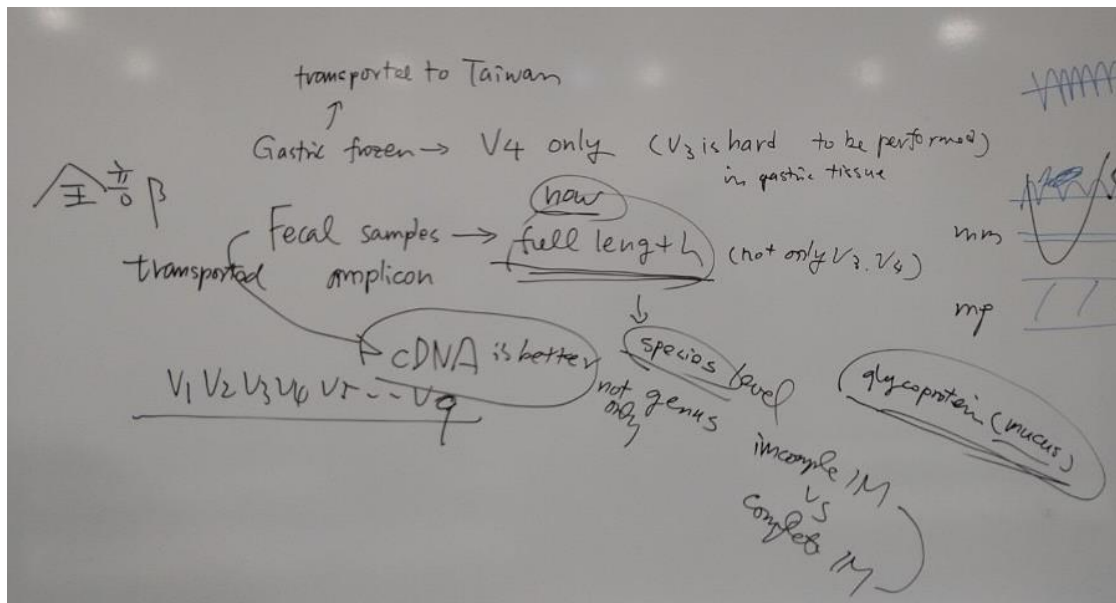 transported to Taiwan
↑
Gastric frozen → V4 only (V3 is hard to be performed)
in gastric tissue
全部
β
now
Fecal samples → full length (not only V3, V4)
transported amplicon
↓
cDNA is better
species level
not only genus
V1 V2 V3 V4 V5 -- V9
glycoprotein (mucus)
incomple IM
vs
complete IM
mm
mp